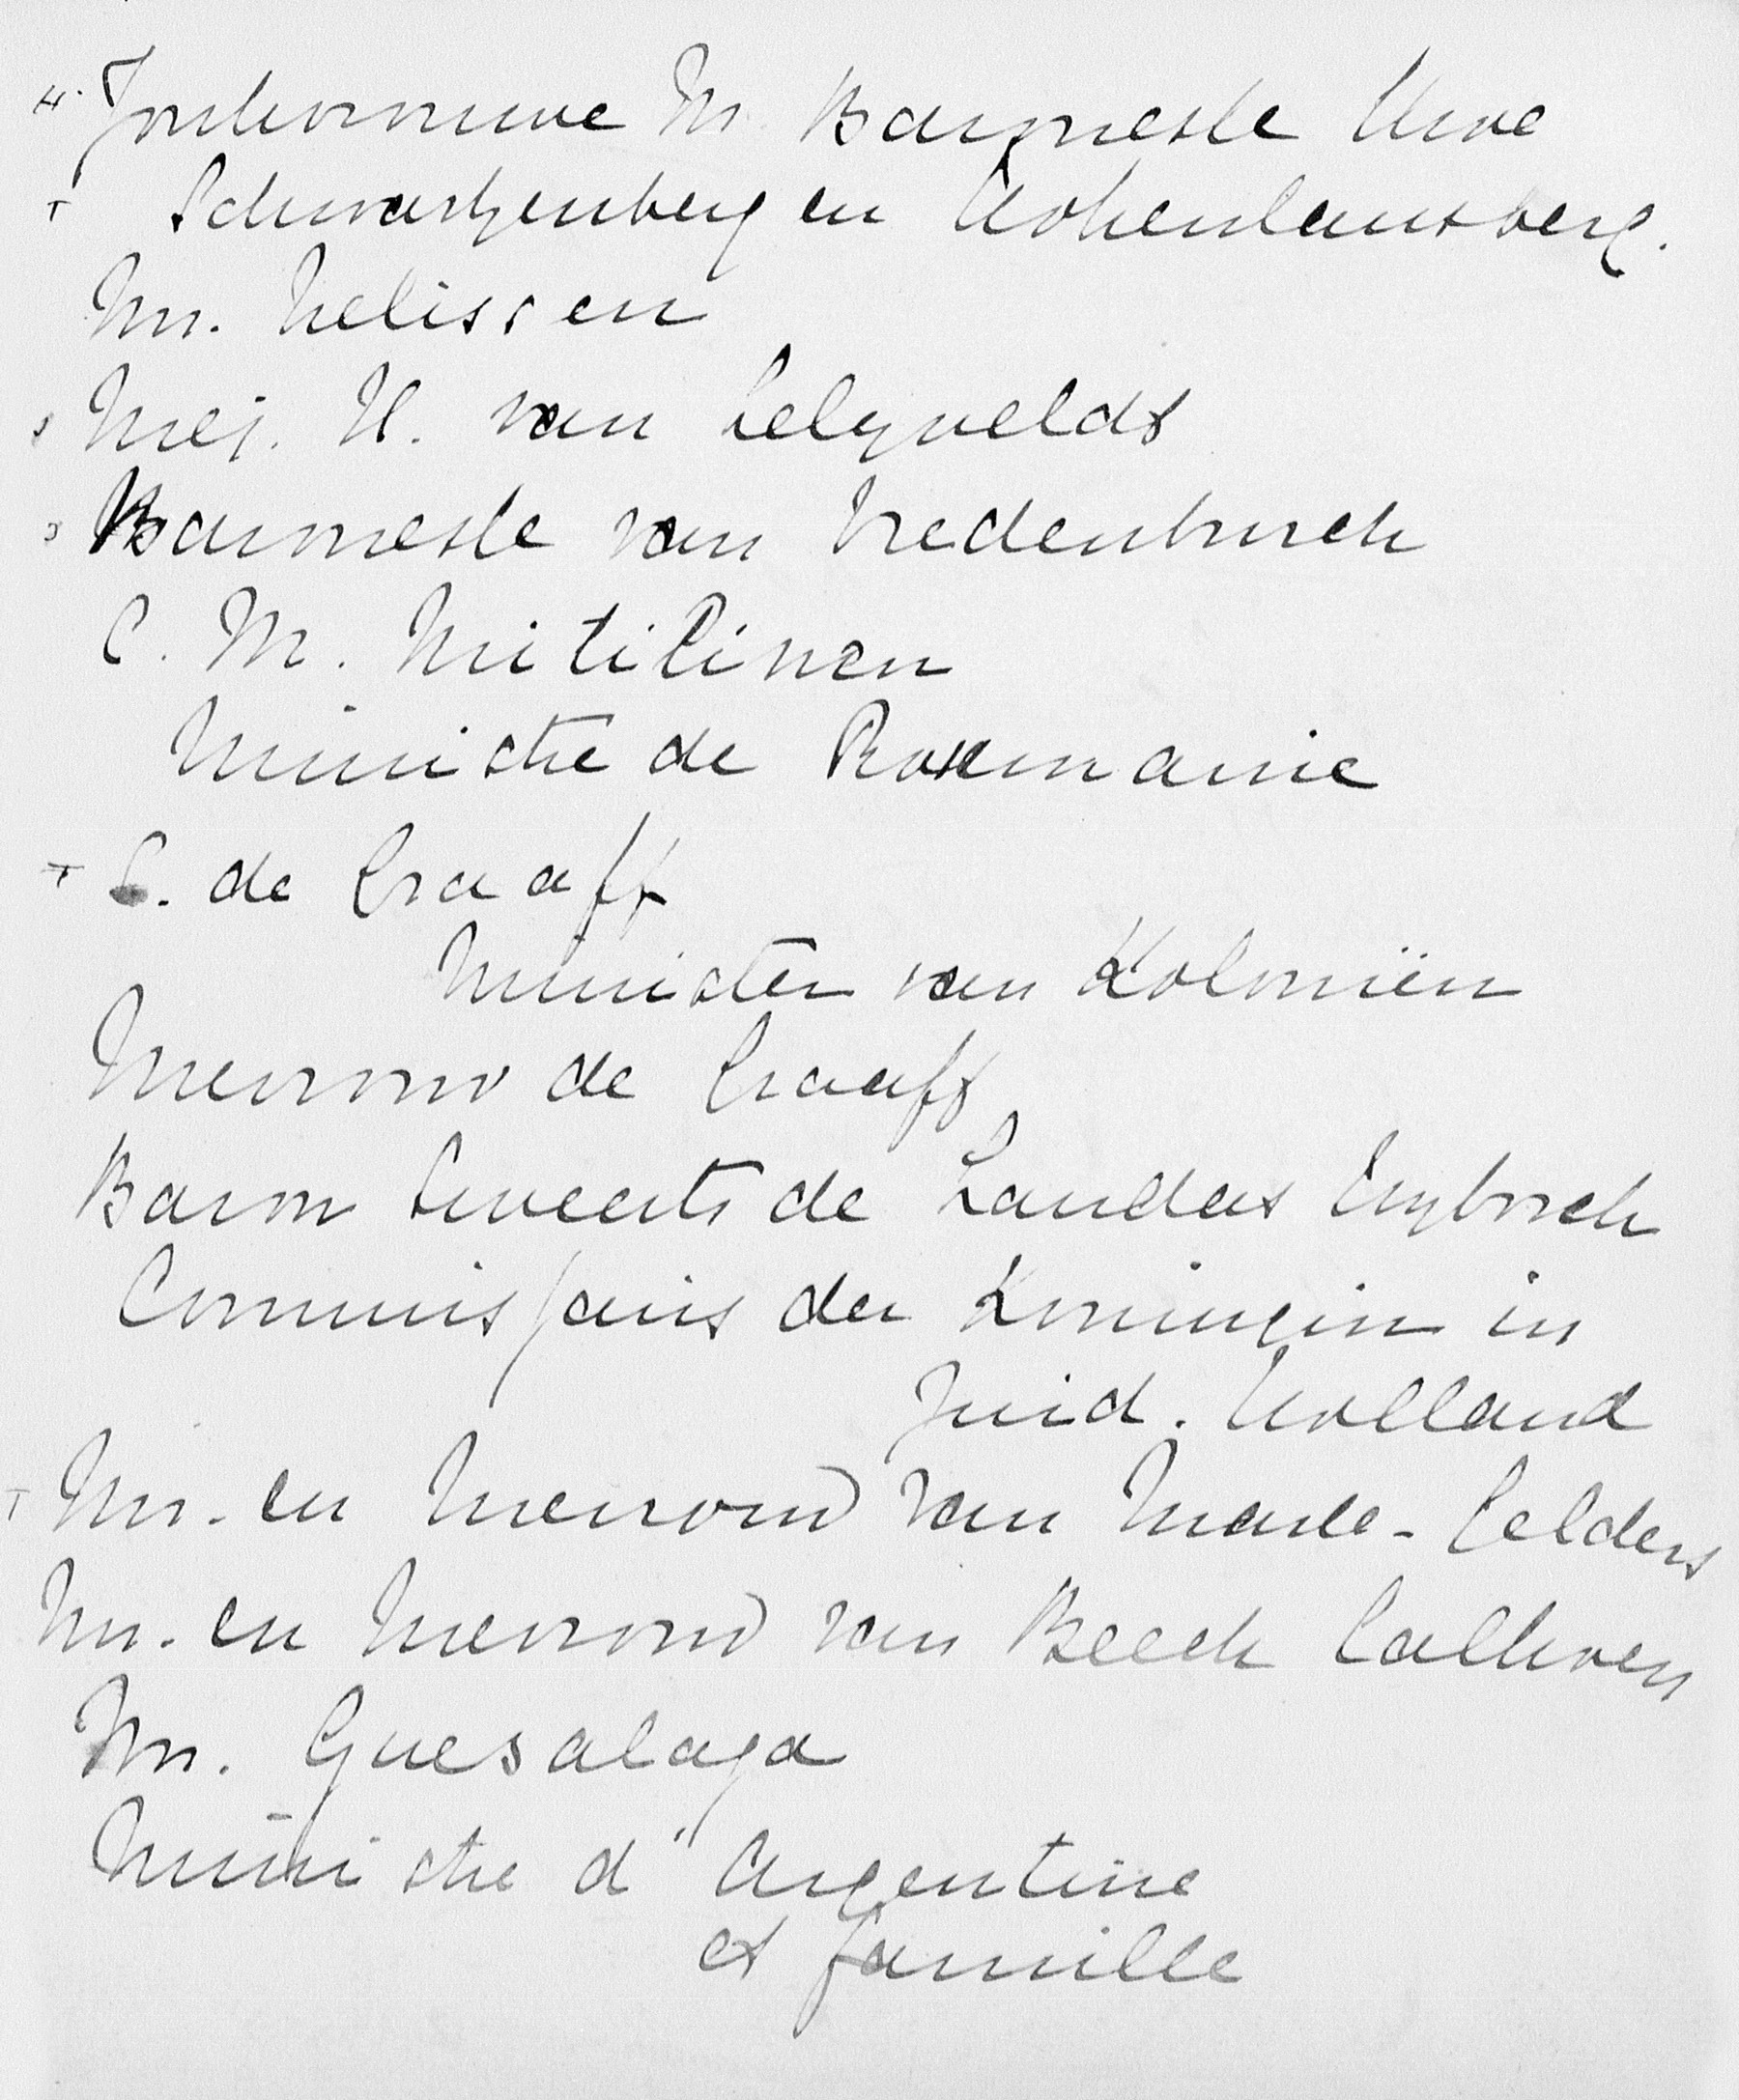 Jonkvrouwe M. Baronesse thoe
Schwartzenberg en Hohenlansberg.
Mr. Nelissen
Mej. H. van Lelyvelds
Baronesse van Vredenburch
C. M. Mitilineu
Ministre de Roumanie
S. de Graaff
Minister van Koloniën
Mevrouw de Graaff
Baron Sweerts de Landas Wyborgh
Commissaris der Koningin in
Zuid. Holland
Mr. en Mevrouw van Marle-Gelders
Mr. en Mevrouw van Beeck Calkoen
Mr. Guesalaga
Ministre d'Argentine
et famille